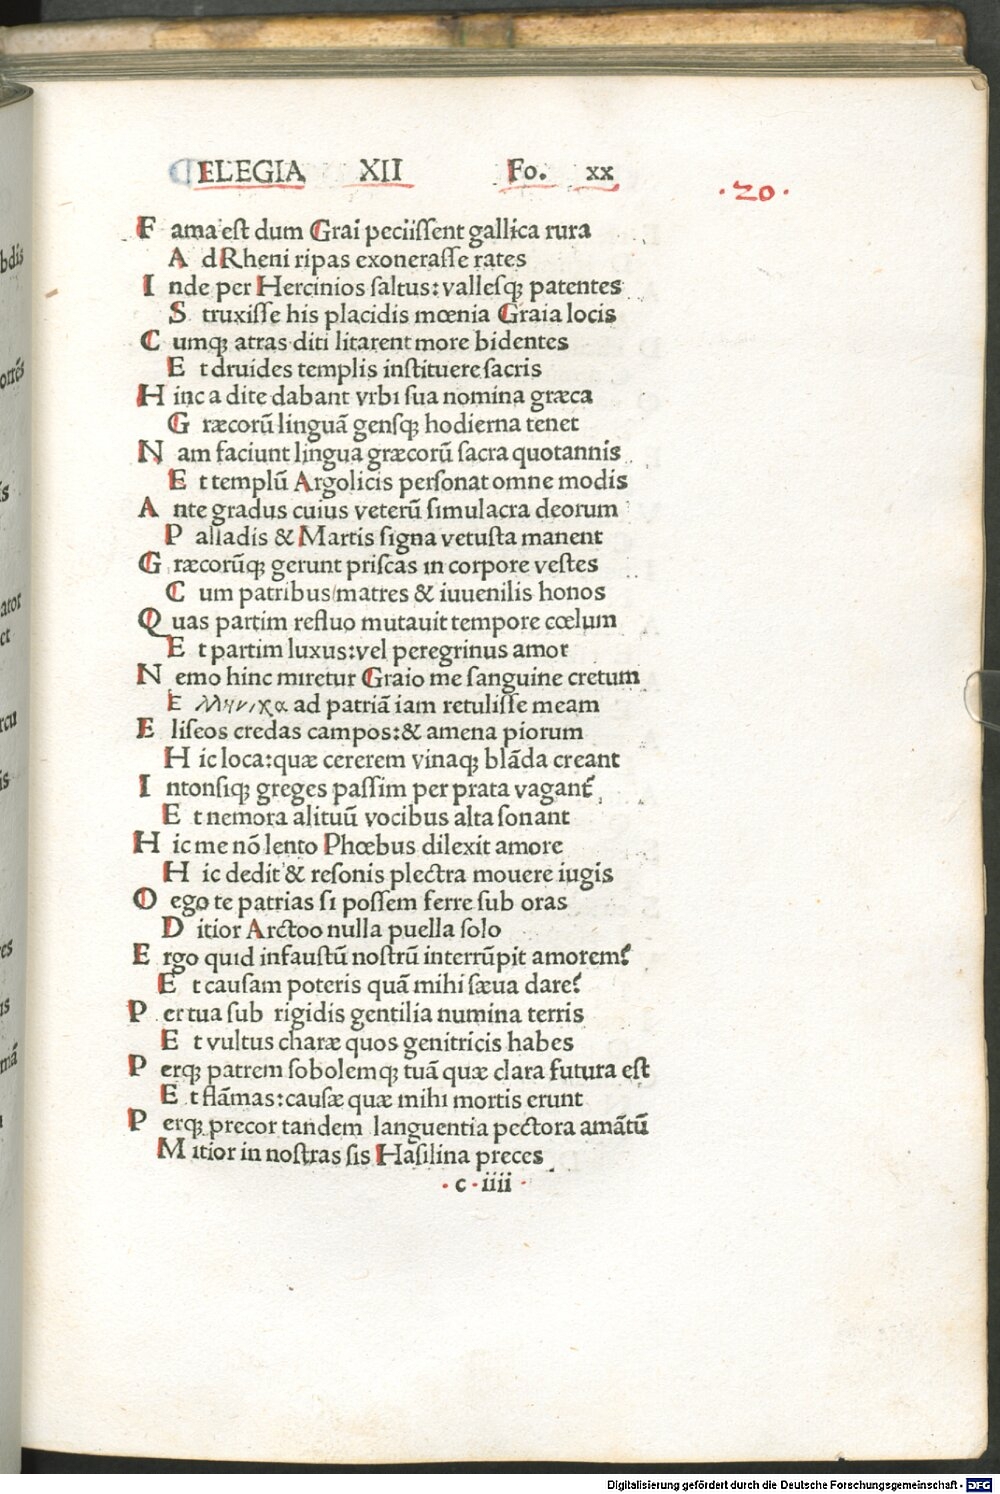 ELEGIA XII Fo. xx
·20·
F ama est dum Grai peciissent gallica rura
A d Rheni ripas exonerasse rates
I nde per Hercinios saltus: vallesq; patentes
S truxisse his placidis mœnia Graia locis
C umq; atras diti litarent more bidentes
E t druides templis instituere sacris
H inc a dite dabant vrbi sua nomina græca
G ræcorū linguā gensq; hodierna tenet
N am faciunt lingua græcorū sacra quotannis
E t templū Argolicis personat omne modis
A nte gradus cuius veterū simulacra deorum
P alladis & Martis signa vetusta manent
G ræcorūq; gerunt priscas in corpore vestes
C um patribus matres & iuuenilis honos
Q uas partim refluo mutauit tempore cœlum
E t partim luxus: vel peregrinus amor
N emo hinc miretur Graio me sanguine cretum
E Μηνιχα ad patriā iam retulisse meam
E liseos credas campos: & amena piorum
H ic loca: quæ cererem vinaq; blāda creant
I ntonsiq; greges passim per prata vagant᷑
E t nemora alituū vocibus alta sonant
H ic me nō lento Phœbus dilexit amore
H ic dedit & resonis plectra mouere iugis
O ego te patrias si possem ferre sub oras
D itior Arctoo nulla puella solo
E rgo quid infaustū nostrū interrūpit amorem?
E t causam poteris quā mihi sæua dare?
P er tua sub rigidis gentilia numina terris
E t vultus charæ quos genitricis habes
P erq; patrem sobolemq; tuā quæ clara futura est
E t flāmas: causæ quæ mihi mortis erunt
P erq; precor tandem languentia pectora amātū
M itior in nostras sis Hasilina preces
· c · iiii ·
bdis
orrēs
is
ator
et
rcu
is
es
us
mā
Digitalisierung gefördert durch die Deutsche Forschungsgemeinschaft - DFG